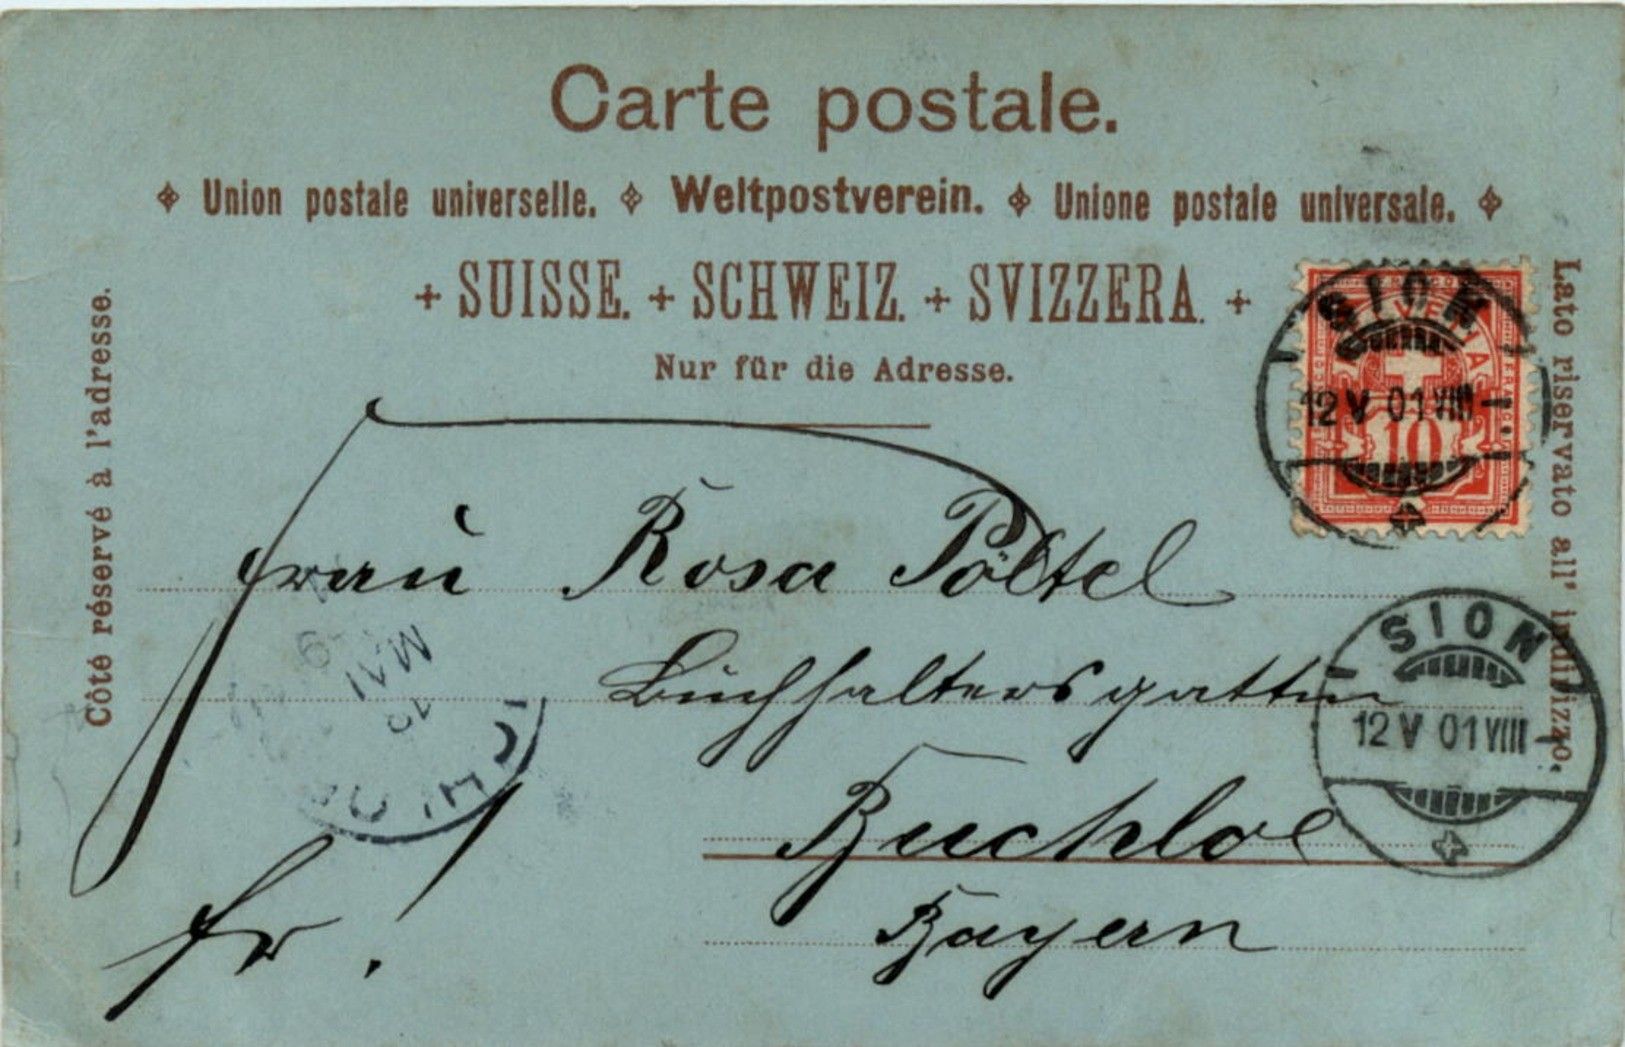 Carte postale.
Union postale universelle. Weltpostverein. Unione postale universale.
SUISSE. SCHWEIZ. SVIZZERA.
Nur für die Adresse.
Côté réservé à l'adresse.
Lato riservato all' indirizzo.
HELVETIA
FRANCO
10
SION
12 V 01 VIII
Frau Rosa Pöltel
Buchhaltersgattin
SION
12 V 01 VIII
MAI
Buchloe
Bayern
fr.!